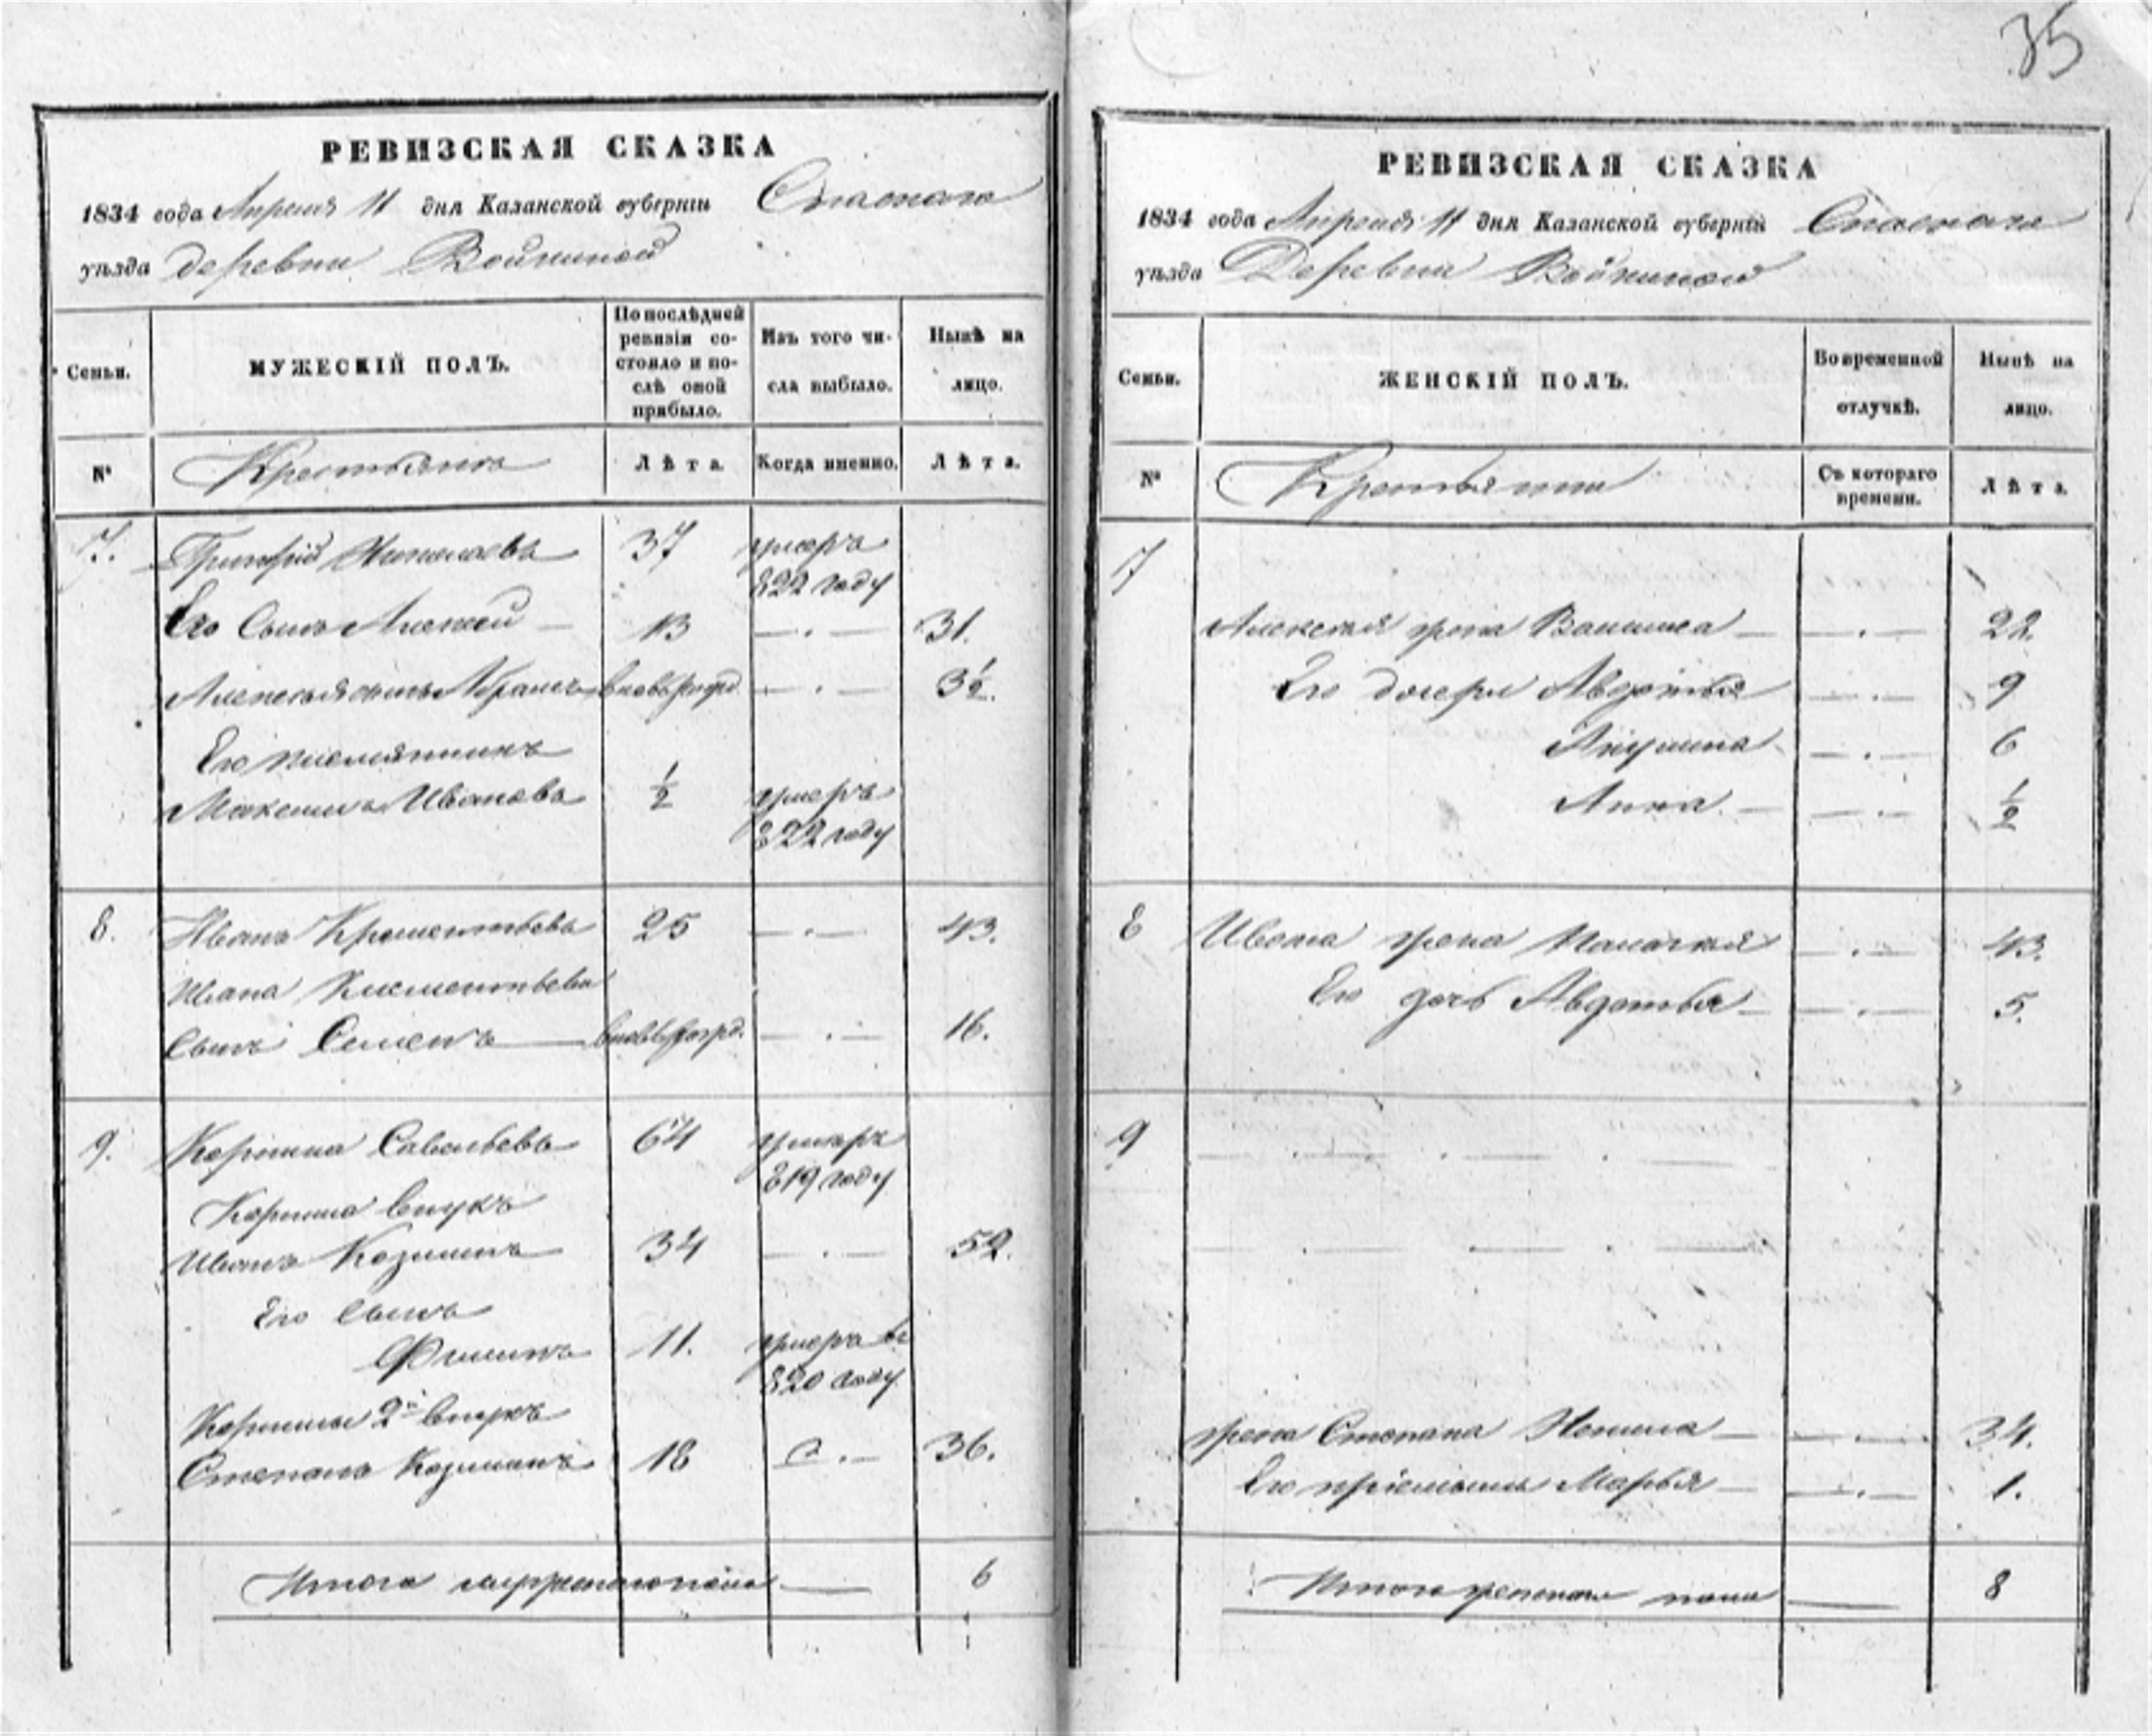 35
РЕВИЗСКАЯ СКАЗКА
1834 года Апреля 11 дня Казанской губернiи Спаскаго
уѣзда деревни Войкиной
Семьи.
МУЖЕСКIЙ ПОЛЪ.
По послѣдней ревизiи состояло и послѣ оной прибыло.
Изъ того числа выбыло.
Нынѣ на лицо.
№
Крестьянъ
Лѣта.
Когда именно.
Лѣта.
7. Григорiй Николаевъ 37 умеръ
822 году
Его Сынъ Алексей 13 31.
Алексея сынъ Абрамъ вновь рожд. 3½.
Его племянникъ
Максимъ Ивановъ ½ умеръ
822 году
8. Иванъ Клементьевъ 25 43.
Ивана Клементьева
Сынъ Семенъ вновь рожд. 16.
9. Савельевъ 64 умеръ
819 году
внукъ
Иванъ Козминъ 34 52.
Его Сынъ
Филипъ 11. умеръ въ
820 году
2й внукъ
Степанъ Козминъ 18 36.
Итого мужеска пола 6
РЕВИЗСКАЯ СКАЗКА
1834 года Апреля 11 дня Казанской губернiи Спаскаго
уѣзда Деревни Войкиной
Семьи.
ЖЕНСКIЙ ПОЛЪ.
Во временной отлучкѣ.
Нынѣ на лицо.
№
Съ котораго времени.
Лѣта.
7
Алексея жена 22.
Его дочери Авдотья 9
Акулина 6
Анна ½
8 Ивана жена Пелагея 43.
Его дочь Авдотья 5.
9
жена Степана 34.
Его Марья 1.
Итого женска пола 8